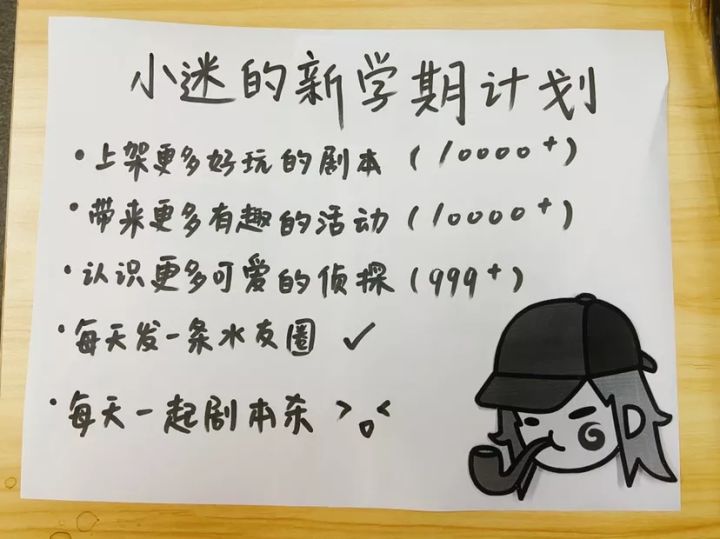 小迷的新学期计划
·上架更多好玩的剧本(10000+)
·带来更多有趣的活动(10000+)
·认识更多可爱的侦探(999+)
·每天发一条水友圈 ✓
·每天一起剧本杀 >。<